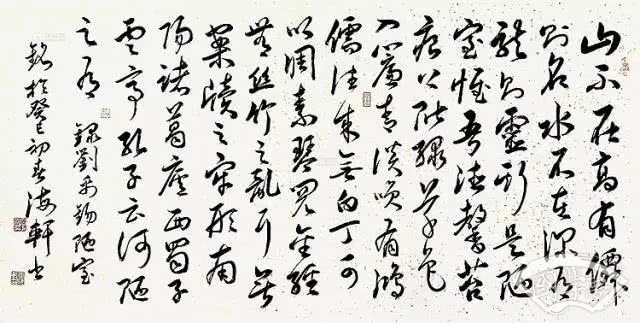 山不在高有僊
則名水不在深有
龍則靈斯是陋
室惟吾德馨苔
痕上階綠草色
入簾青談笑有鴻
儒往來無白丁可
以調素琴閱金經
無絲竹之亂耳無
案牘之勞形南
陽諸葛廬西蜀子
雲亭孔子云何陋
之有 錄劉禹錫陋室
銘於癸巳初春海軒書